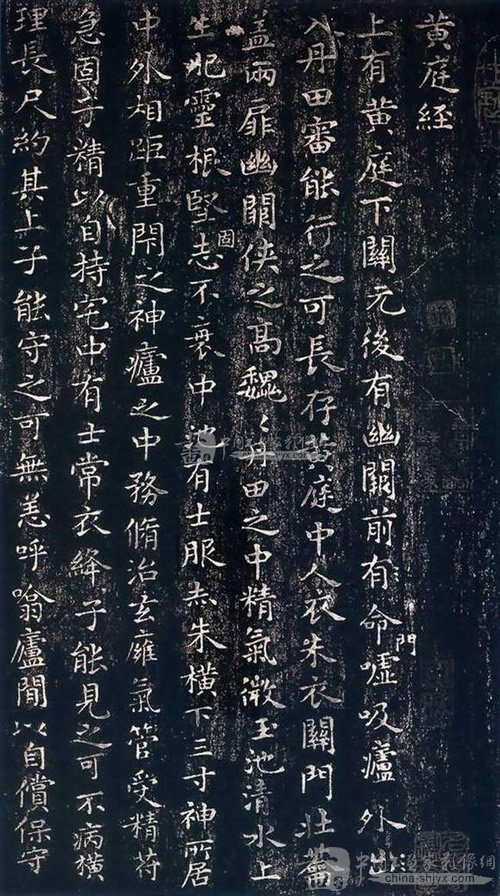 黄庭經
上有黄庭下關元後有幽闕前有命門噓吸廬外出
入丹田審能行之可長存黄庭中人衣朱衣關門壯蘥
蓋兩扉幽闕俠之高巍〻丹田之中精氣微玉池清水上
生肥靈根堅固志不衰中池有士服赤朱横下三寸神所居
中外相距重閇之神廬之中務脩治玄廱氣管受精苻
急固子精以自持宅中有士常衣絳子能見之可不病横
理長尺約其上子能守之可無恙呼噏廬間以自償保守
china-shjyx.com